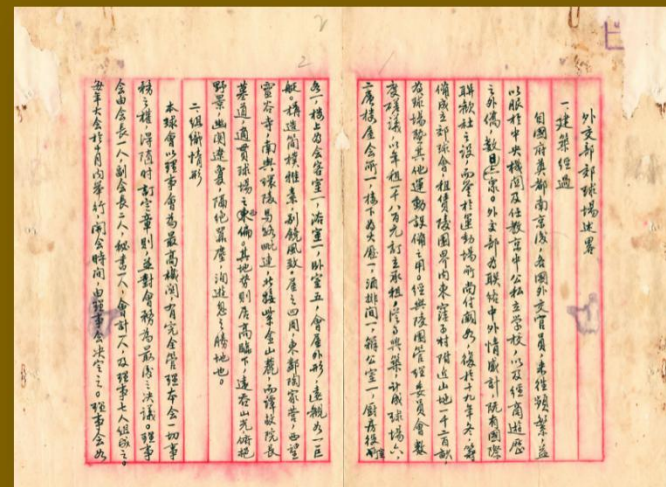 外交部部球場述畧
一、建築經過
自國府奠都南京後，各國外交官員，來往頻繁，益
以服於中央機關及任教京中公私立學校，以及經商遊歷
之外僑，數日益眾。外交部為聯絡中外情感計，既有國際
聯歡社之設，而苦於運動場所尚付闕如，復於十九年冬，籌
備成立部球會，租賃陵園界內東窪子村附近山地一千二百畝，
為球場暨其他運動設備之用。經與陵園管經委員會數
度磋議，以年租一千八百元訂立承租，從事興築，計成球場六，
二層樓屋會所一，樓下為大廳一，酒排間一，辦公室一，廚房
各一，樓上為會客室一，浴室一，臥室五，會屋外形，遠觀如一巨
艇。構造簡樸雅素，別饒風致。屋之四周，東鄰陶家營，西望
靈谷寺，南與環陵馬路毗連，北臨紫金山麓，而譚故院長
墓道，適貫球場之東偏。其地勢則居高臨下，遠吞山光，俯挹
野景，幽閒遼夐，隔絕塵壒，洵遊憩之勝地也。
二、組織情形
本球會以理事會為最高機關，有完全管理本會一切事
務之權，得隨時訂定章則，並對會務為最後之決議。理事
會由會長一人，副會長二人，秘書一人，會計一人，及理事七人組成之。
每年大會於月內舉行，開會時間，由理事會決定之。理事會如